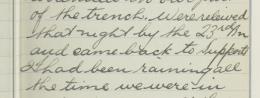 of the trench. Were releived
that night by the 23rd Bn
and came back to supports
It had been raining all
the time we were in